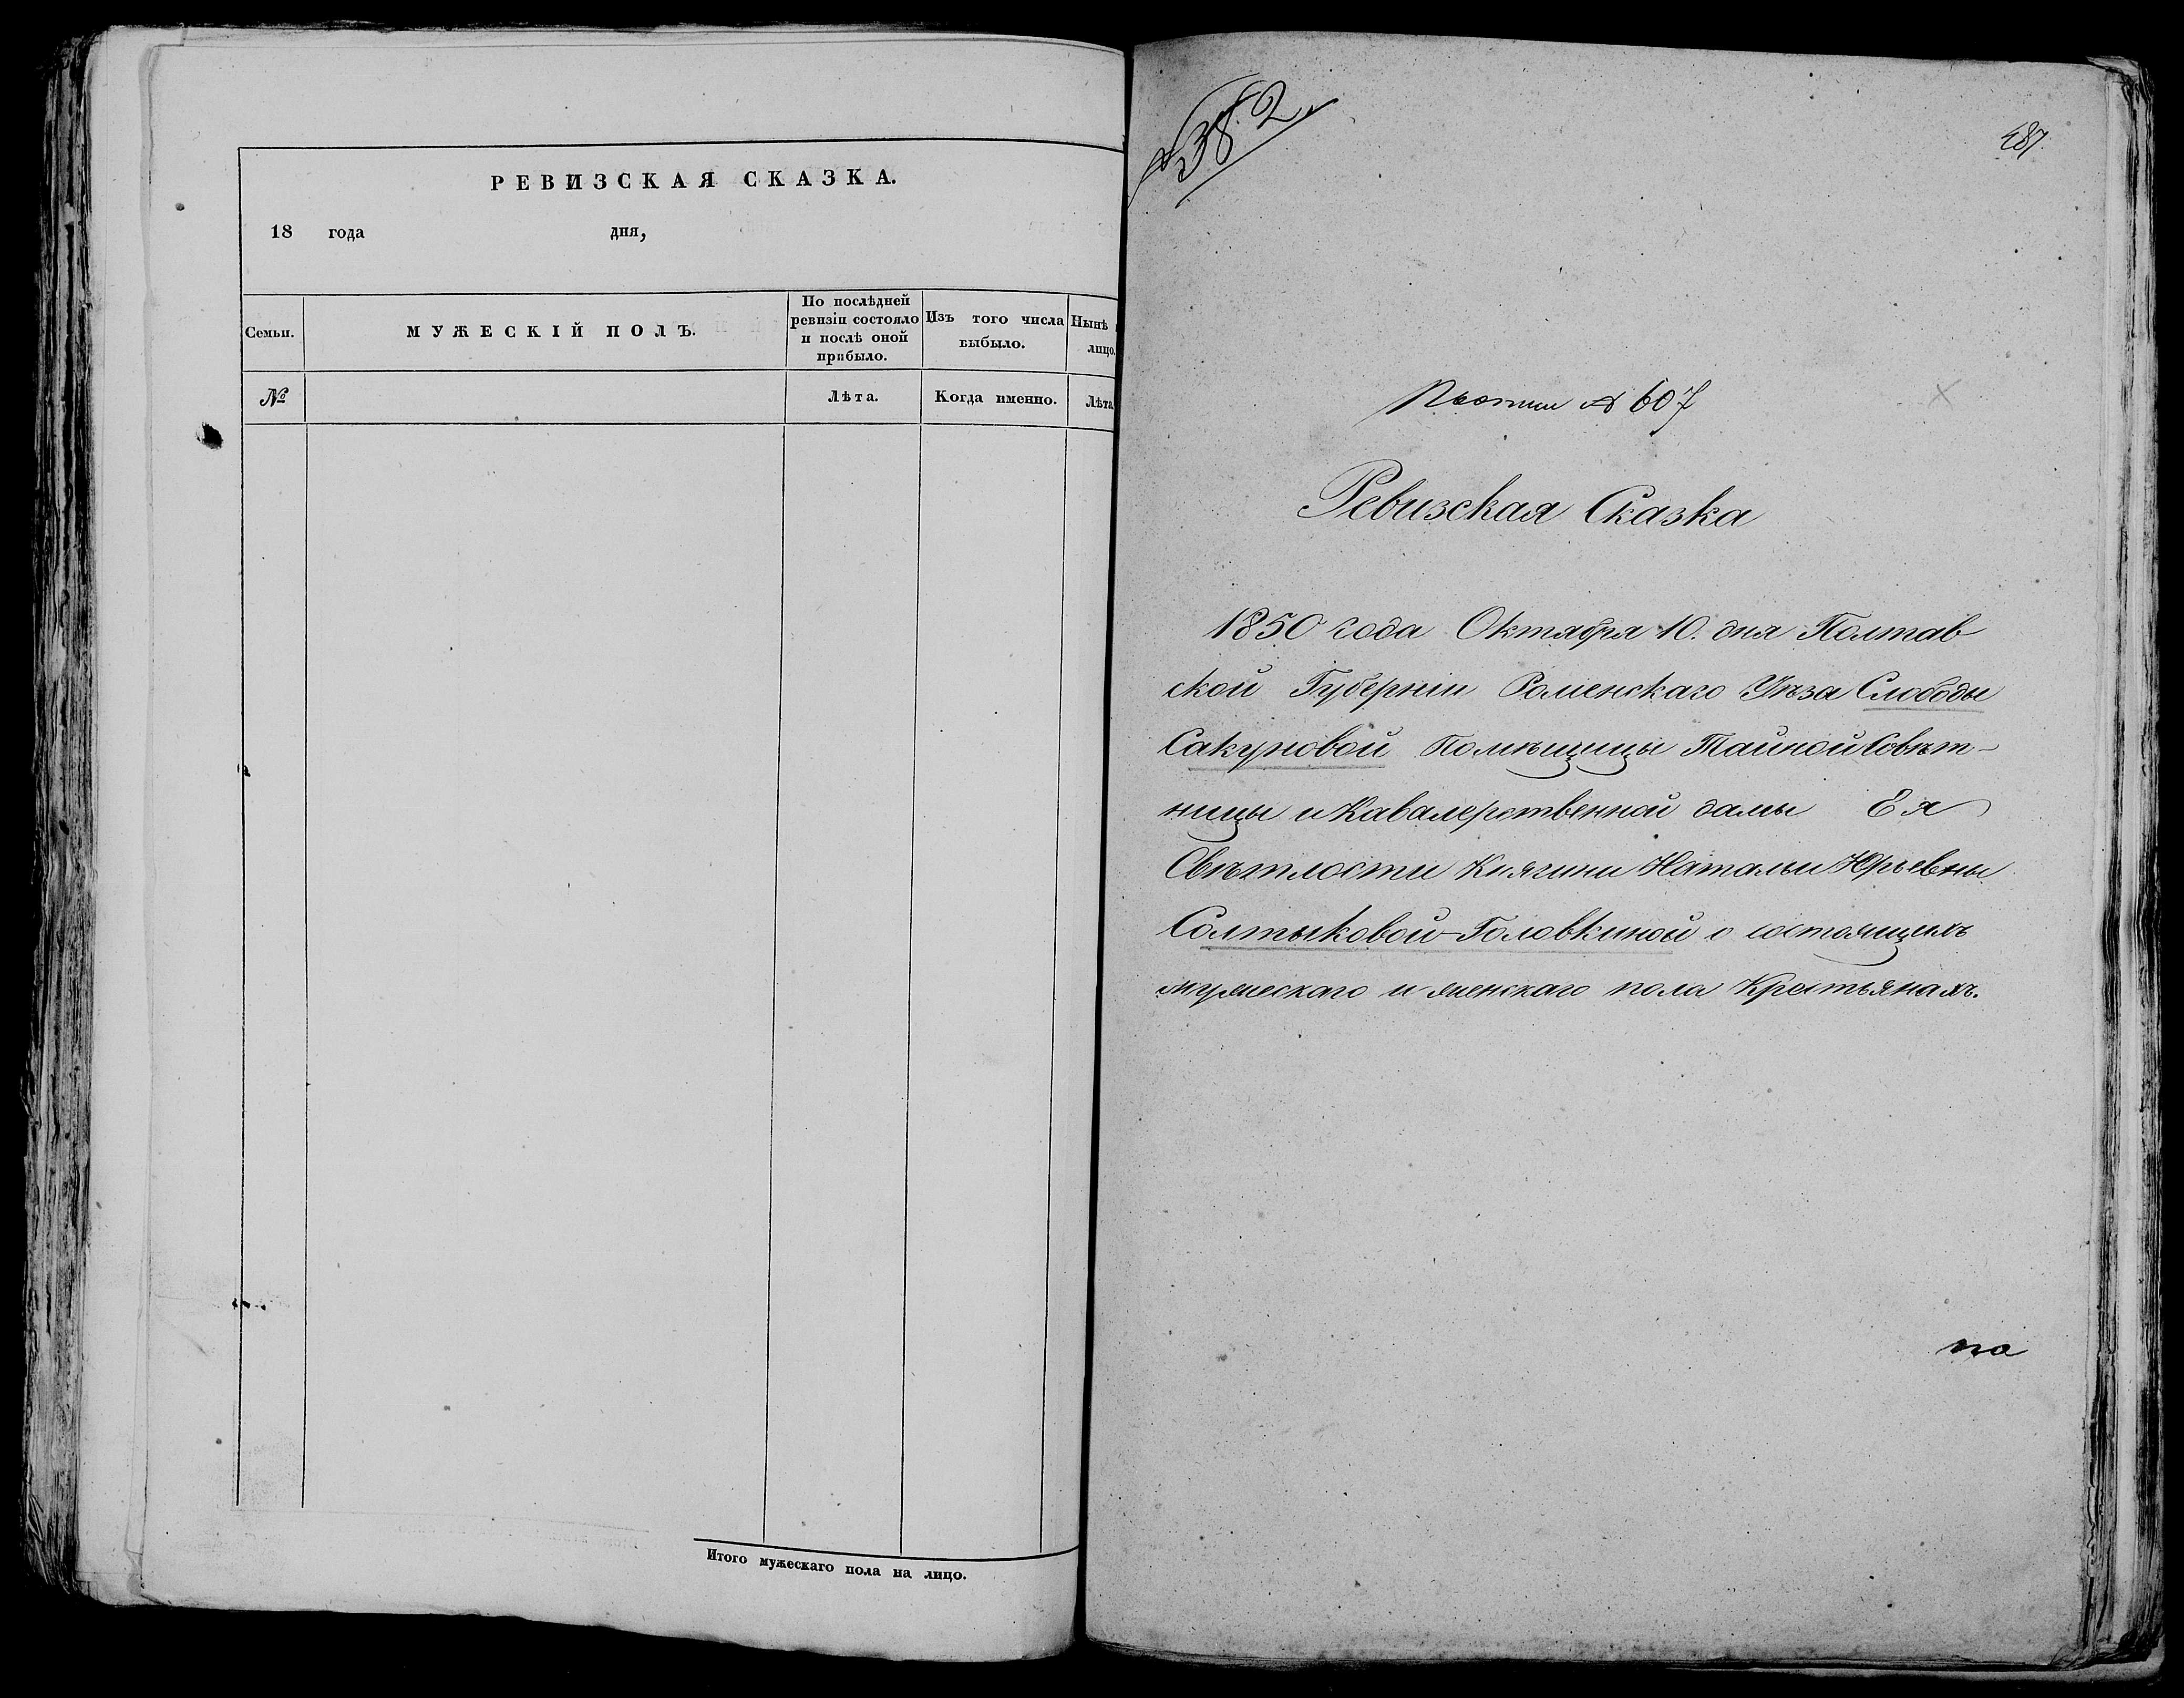 РЕВИЗСКАЯ СКАЗКА.
18 года дня,
Семьи.
МУЖЕСКІЙ ПОЛЪ.
По послѣдней
ревизіи состояло
и послѣ оной
прибыло.
Изъ того числа
выбыло.
Нынѣ
лицо.
№
Лѣта.
Когда именно.
Лѣта.
Итого мужескаго пола на лицо.
382
487.
№ 607
Ревизская Сказка
1850 года Октября 10. дня Полтав
ской Губерніи Роменскаго Уѣзда Слободы
Сакуновой Помѣщицы Тайной Совѣт-
ницы и Кавалерственной дамы Ея
Свѣтлости Княгини Натальи Юрьевны
Солтыковой-Головкиной о состоящихъ
мужескаго и женскаго пола Крестьянахъ.